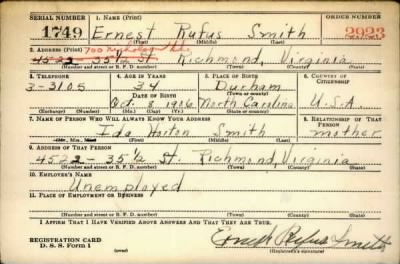 SERIAL NUMBER 1. NAME (Print) ORDER NUMBER
1749 Ernest Rufus Smith 2923
(First) (Middle) (Last)
2. ADDRESS (Print) 700
4522 - 35½ St. Richmond, Virginia
(Number and street or R. F. D. number) (Town) (County) (State)
3. TELEPHONE 4. AGE IN YEARS 5. PLACE OF BIRTH 6. COUNTRY OF CITIZENSHIP
3-3105 34 Durham
DATE OF BIRTH
Oct. 8, 1906 North Carolina U.S.A.
(Exchange) (Number) (Mo.) (Day) (Yr.) (State or country)
7. NAME OF PERSON WHO WILL ALWAYS KNOW YOUR ADDRESS 8. RELATIONSHIP OF THAT PERSON
Ida Horton Smith mother
(Mr., Mrs., Miss) (First) (Middle) (Last)
9. ADDRESS OF THAT PERSON
4522 - 35½ St. Richmond, Virginia
(Number and street or R. F. D. number) (Town) (County) (State)
10. EMPLOYER'S NAME
Unemployed
11. PLACE OF EMPLOYMENT OR BUSINESS
(Number and street or R. F. D. number) (Town) (County) (State)
I AFFIRM THAT I HAVE VERIFIED ABOVE ANSWERS AND THAT THEY ARE TRUE.
REGISTRATION CARD
D. S. S. Form 1 Ernest Rufus Smith
(Registrant's signature)